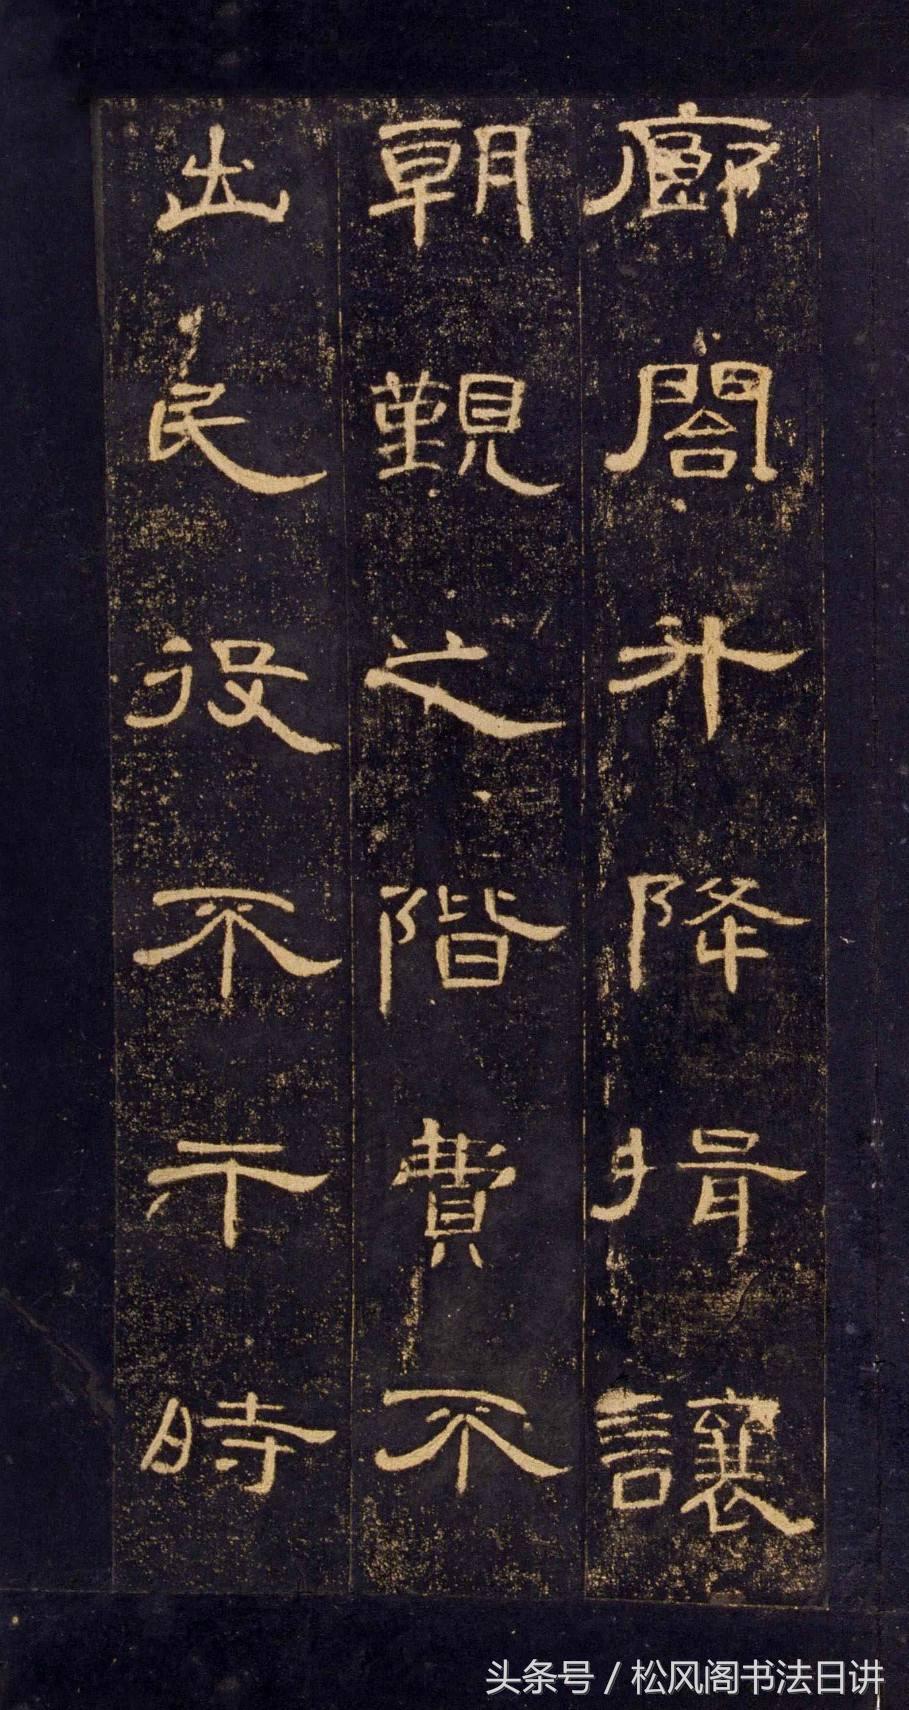 廊閤升降揖讓
朝覲之階費不
出民役不干時
头条号 / 松风阁书法日讲